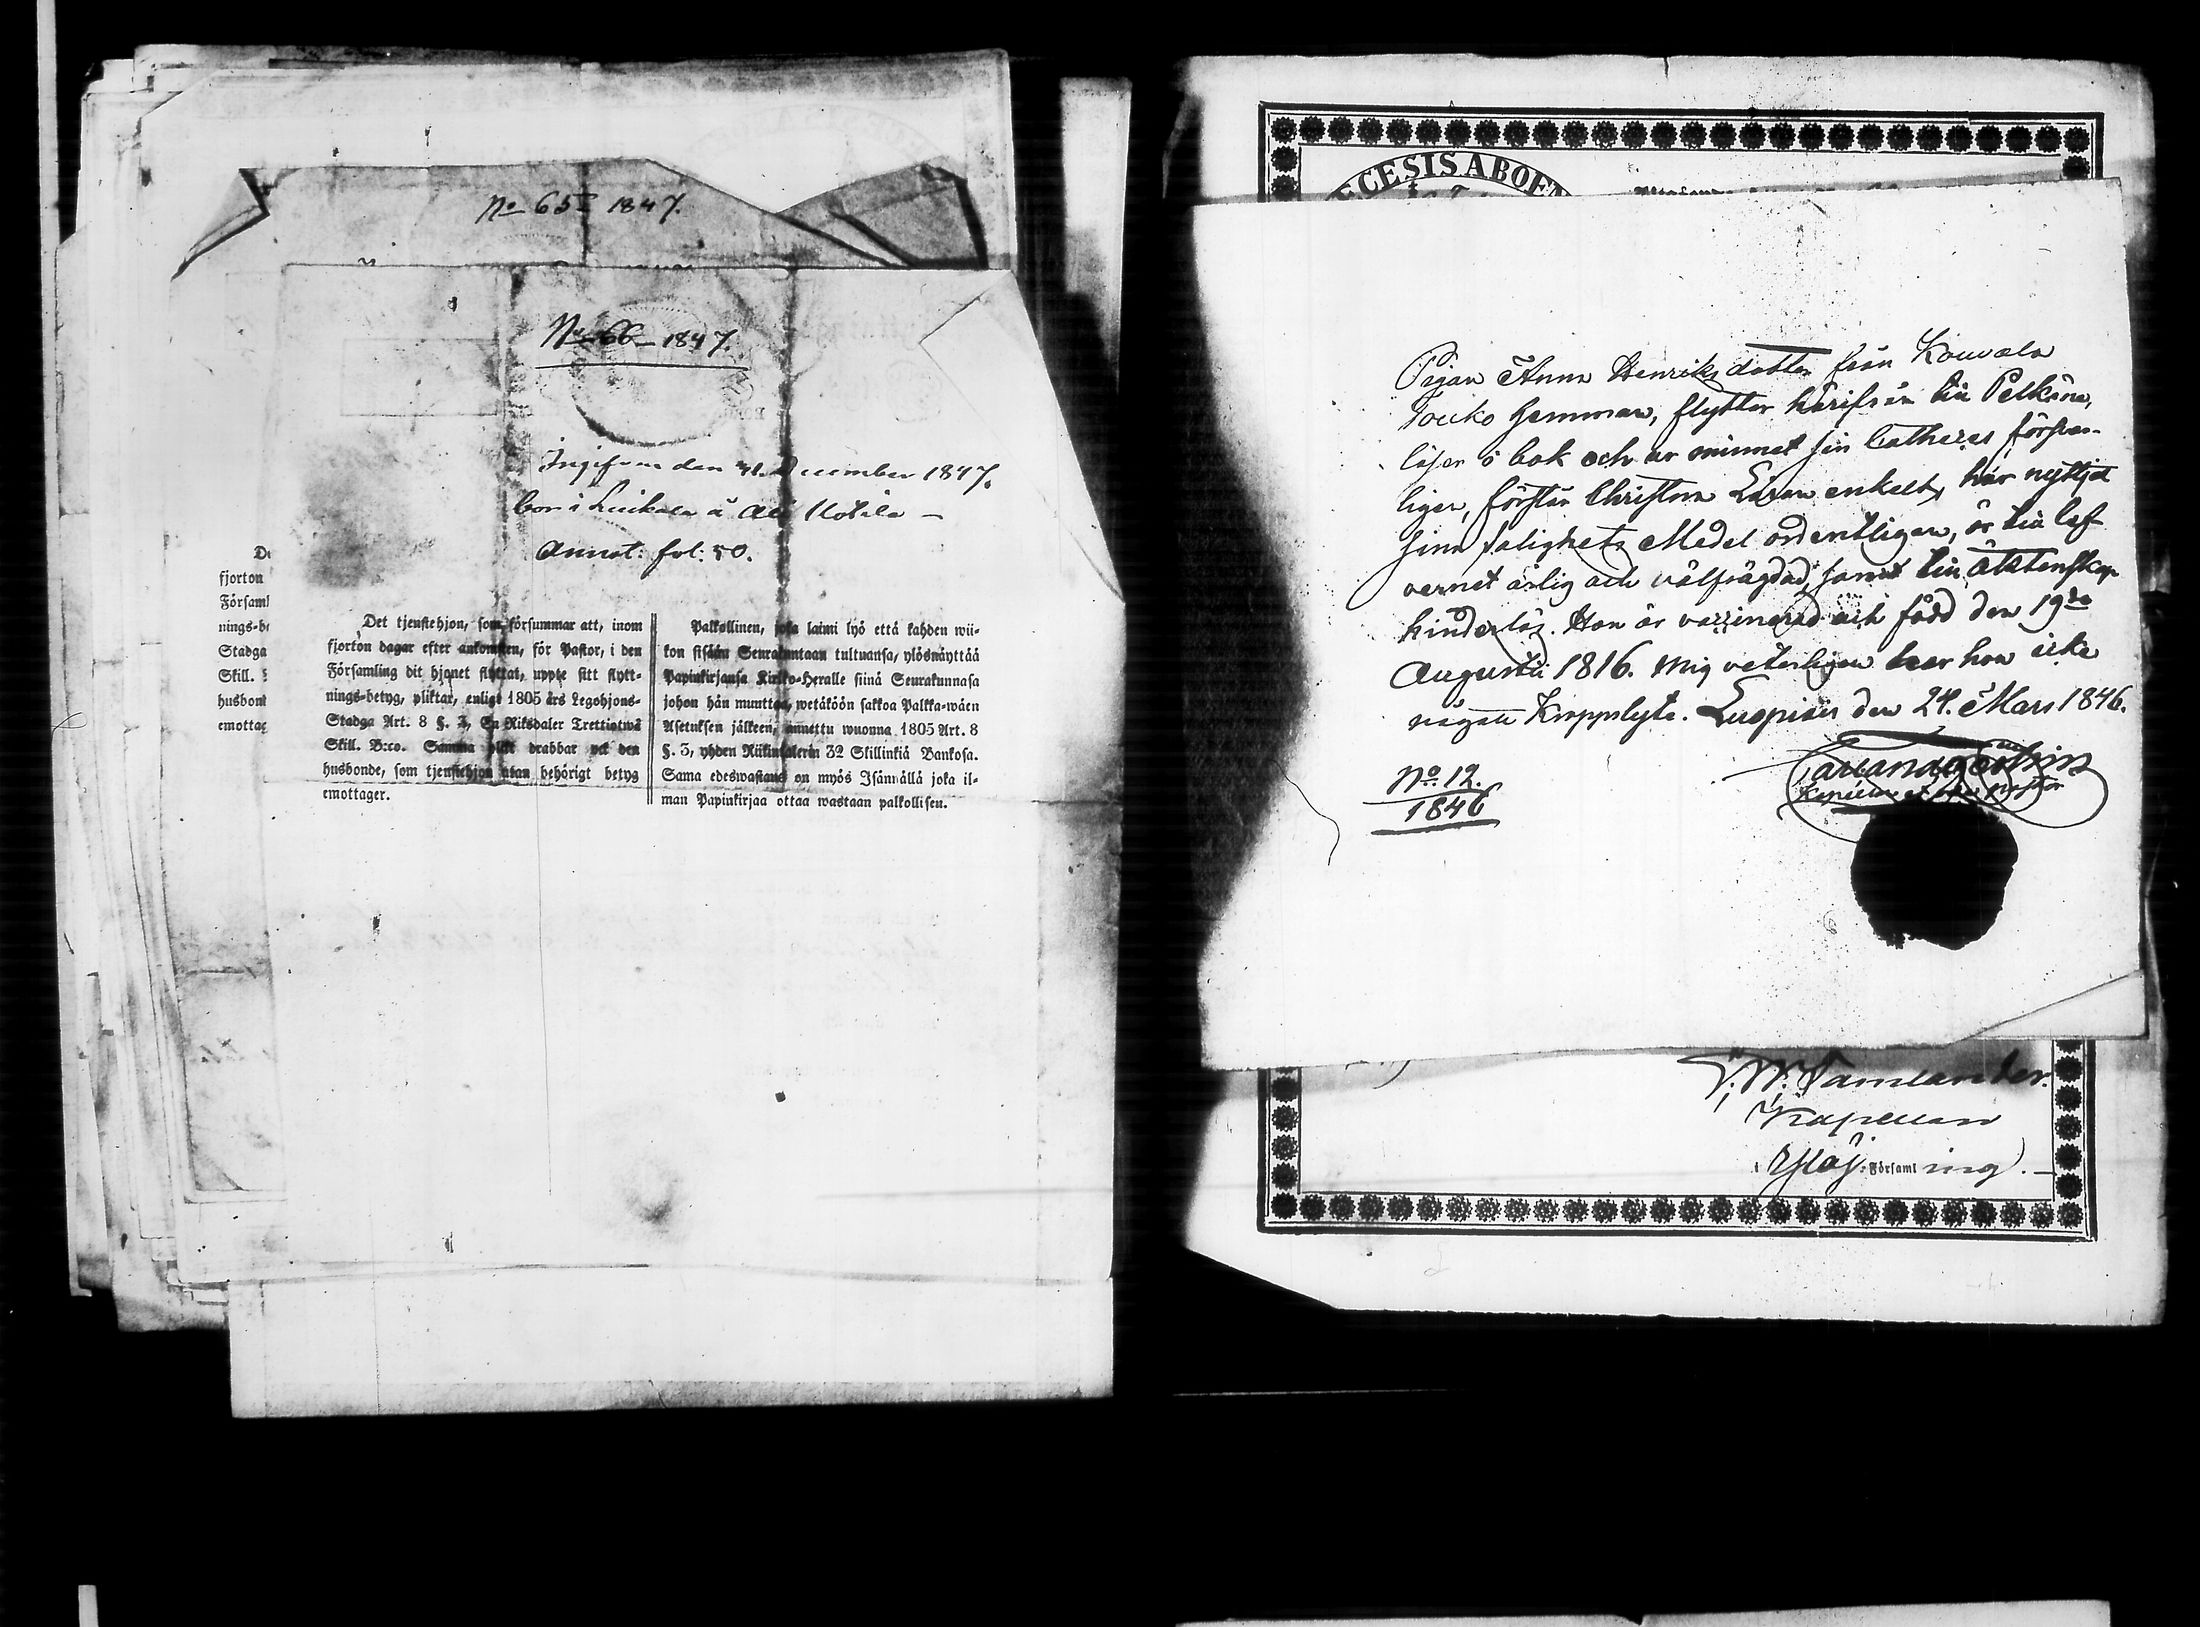 No 65 1847.
No 66 1847.
Ingifven den 31. December 1847.
bor i Luikala
Annot: fol: 50.
De
fjorton
Församl
nings-be
Stadga
Skill.
husbond
emottag
Det tjenstehjon, som försummar att, inom
fjorton dagar efter ankomsten, för Pastor, i den
Församling dit hjonet flyttat, uppte sitt flytt-
nings-betyg, pliktar, enligt 1805 års Legohjons-
Stadga Art. 8 §. 3, En Riksdaler Trettiotwå
Skill. B:co. Samma plikt drabbar ock den
husbonde, som tjenstehjon utan behörigt betyg
emottager.
Palkollinen, joka laimi lyö että kahden wii-
kon sisään Seurakuntaan tultuansa, ylösnäyttää
Papinkirjansa Kirkko-Heralle siinä Seurakunnasa
johon hän muuttaa, wetäköön sakkoa Palkka-wäen
Asetuksen jälkeen, annettu wuonna 1805 Art. 8
§. 3, yhden Riikintalerin 32 Skillinkiä Bankosa.
Sama edeswastaus on myös Isännällä joka il-
man Papinkirjaa ottaa wastaan palkollisen.
ECESIS ABOEN
Pigan Anna Henriksdotter från Kouvala
Jouko hemman, flyttar härifrån till Pelkäne,
läser i bok och ur minnet sin Catheches försva-
liger, förstår Christna Läran enkelt, har nyttjat
sina salighets Medel ordentligen, är till lef-
vernet ärlig och välfrägdad, samt till äktenskap
hinderlös. Hon är vaccinerad och född den 19de
Augusti 1816. Mig veterligen har hon icke
någon Kroppslyte. Luopiois den 24. Mars 1846.
No. 12.
1846
Kapellan
Församl ing.